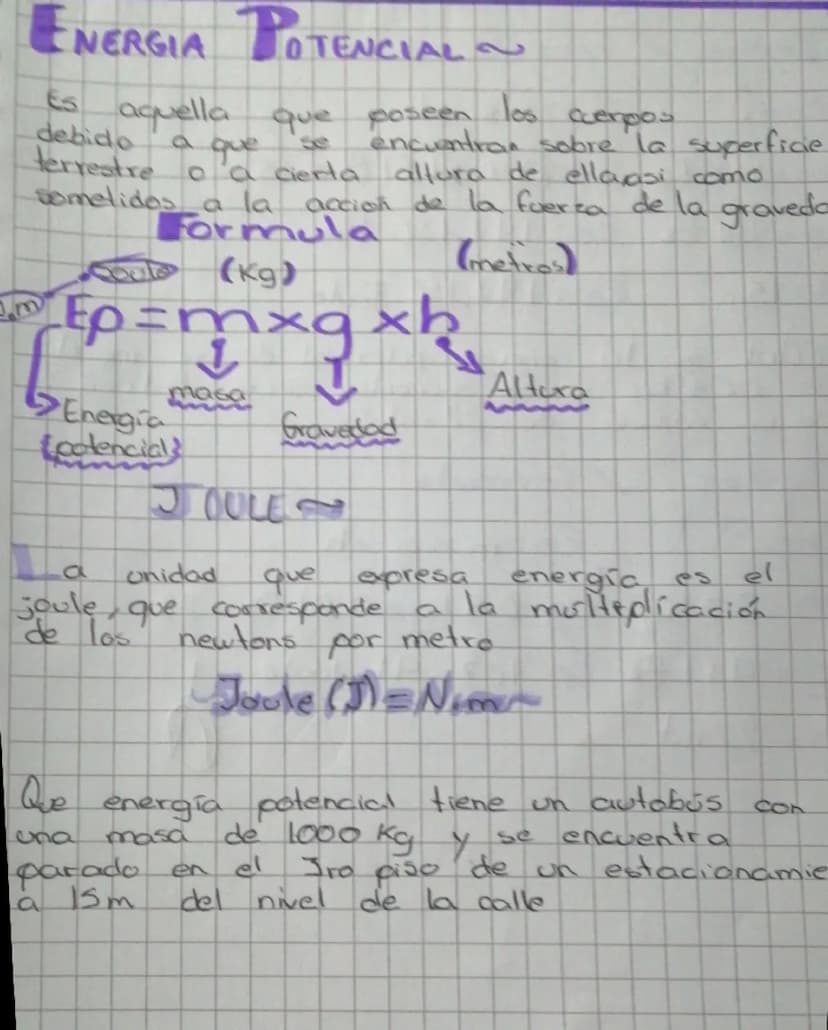 ENERGIA POTENCIAL~
Es aquella que poseen los cuerpos
debido a que se encuentran sobre la superficie
terrestre o a cierta altura de ella asi como
sometidos a la accion de la fuerza de la graveda
Formula
Joule (Kg) (metros)
.m Ep = m x g x h
masa Altura
Energía Gravedad
(potencial)
JOULE ~
La unidad que expresa energía es el
joule, que corresponde a la multiplicación
de los newtons por metro
Joule (J) = N.m
Que energía potencial tiene un autobús con
una masa de 1000 Kg y se encuentra
parado en el 3ro piso de un estacionamie
a 15m del nivel de la calle